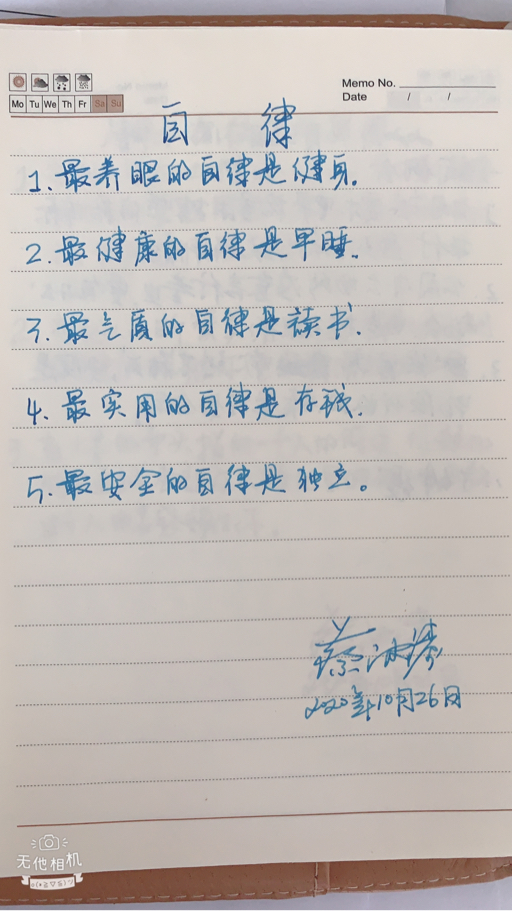 Memo No.
Mo Tu We Th Fr Sa Su
Date / /
自律
1、最养眼的自律是健身.
2、最健康的自律是早睡.
3、最气质的自律是读书.
4、最实用的自律是存钱.
5、最安全的自律是独立。
2020年10月26日
无他相机